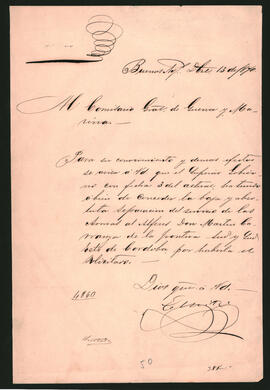 Buenos Ays. Dbre 13 de 1870
Al Comisario Gral. de Guerra y Ma
rina.
Para su conocimiento y demas efectos
se avisa á Vd que el Superior Gobier
no con fecha 3 del actual, ha tenido
á bien de conceder la baja y abso
luta separacion del servicio de las
Armas al Alferez Don Martin
de la frontera Sud y Sud
Este de Cordoba por haberla
solicitado.
Dios gue á Vd.
4860
50